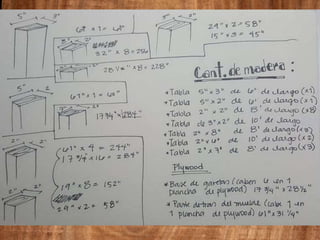 5" 3"
61" x 1 = 61"
8" 2"
32" x 8 = 256
2" 2"
28 ½" x 8 = 228"
5" 2"
29" x 2 = 58"
15" x 3 = 45"
5" 2"
61" x 1 = 61"
17 ¾" x 16 = 284"
2" 2"
61" x 4 = 244"
17 ¾ x 16 = 284"
19" x 8 = 152"
29" x 2 = 58"
Cant. de madera:
* Tabla 5" x 3" de 6' de largo (x1)
* Tabla 5" x 2" de 6' de largo
* Tabla 2" x 2" de 8' de largo (x8)
* Tabla de 5" x 2" de 10' de largo
* Tabla 2" x 8" de 8' de largo
* Tabla 2" x 6" de 10' de largo (x2)
* Tabla 2" x 3" de 8' de largo (x3)
Plywood
* Base de gavetas (caben 6 en 1
plancha de plywood) 17 ¾" x 28 ½"
* Parte detras del mueble (cabe 1 en
1 plancha de plywood) 61" x 31 ¼"